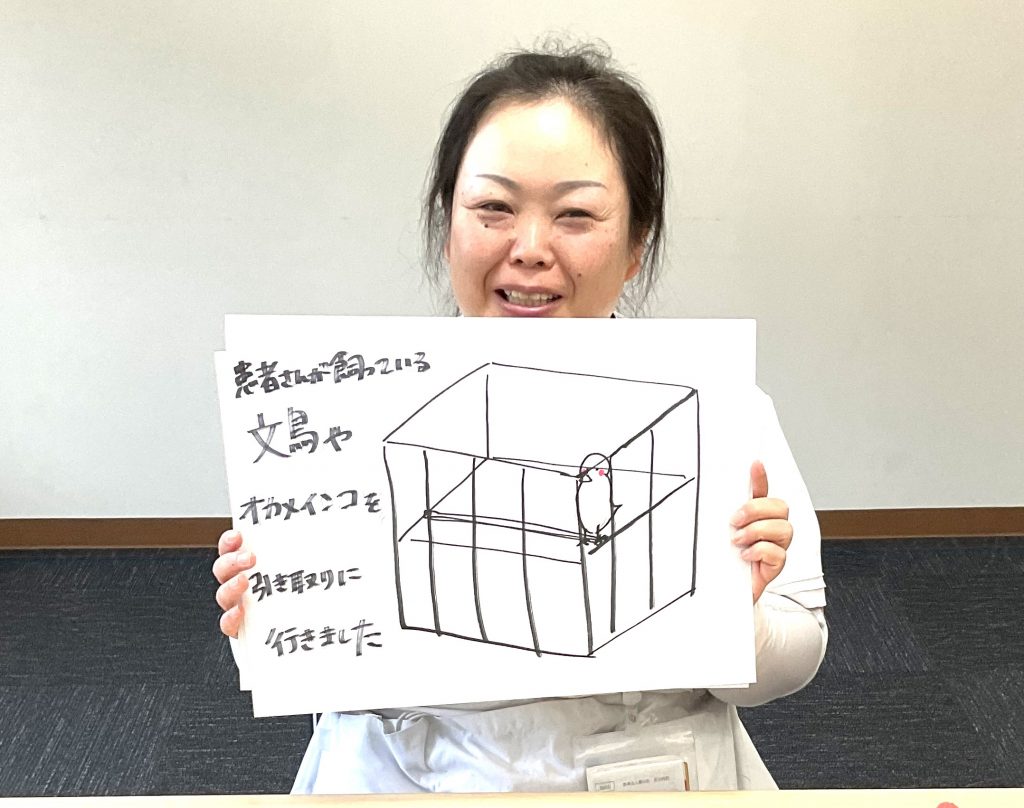 患者さんが飼っている
文鳥や
オカメインコを
引き取りに
行きました